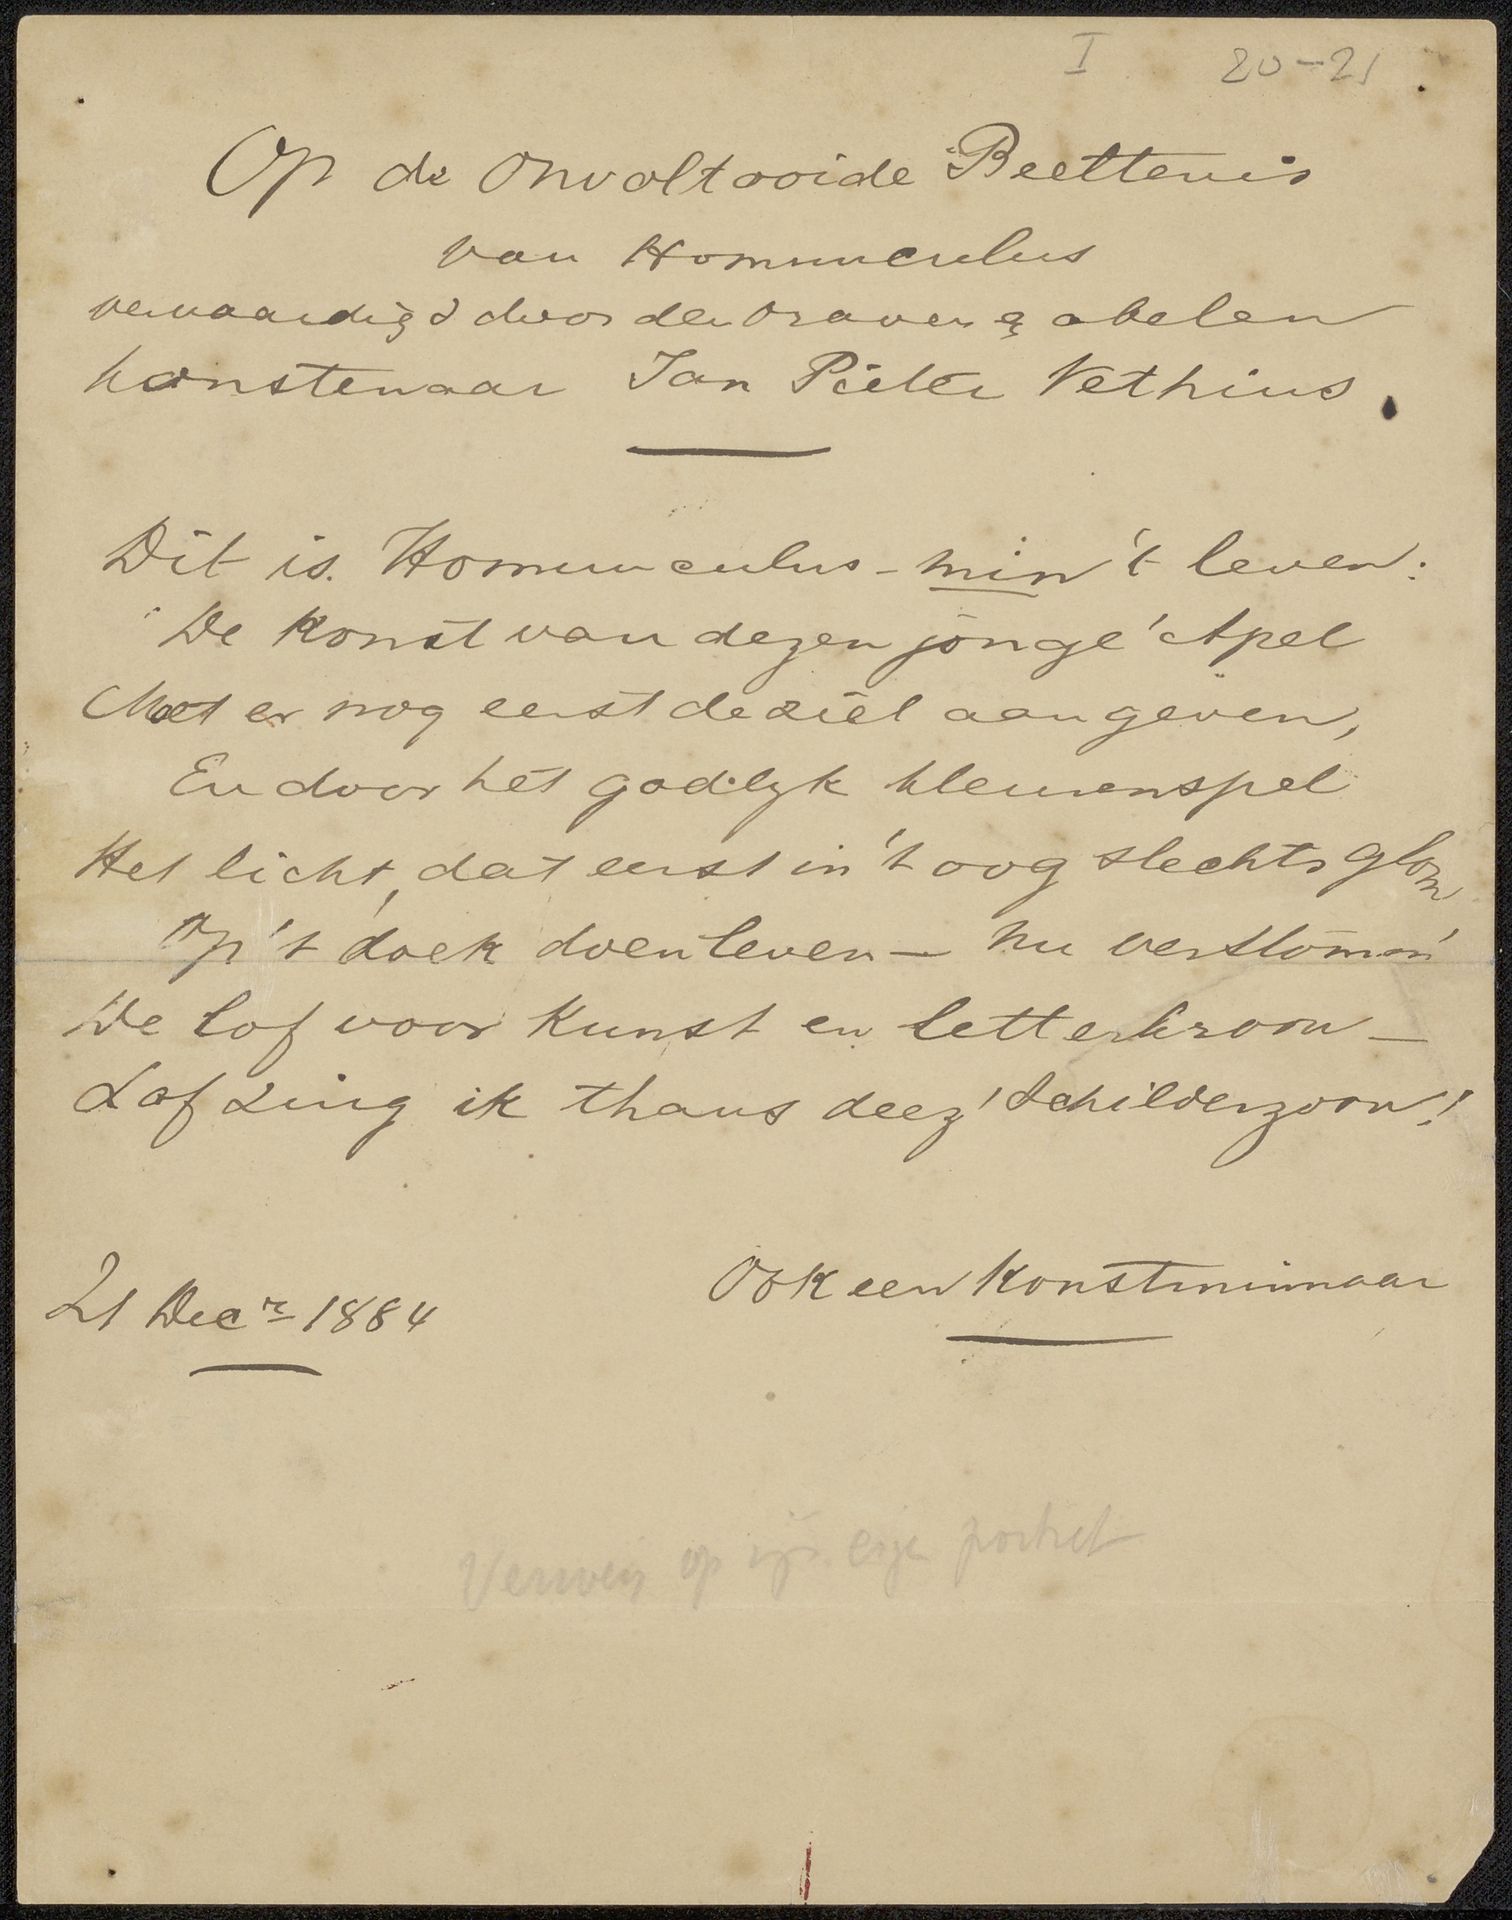 I 20-21
Op de onvoltooide Beeltenis
van Homunculus
vervaardigd door den braven & abelen
konstenaar Jan Pieter Vethius.
Dit is Homunculus - min 't leven:
De Konst van dezen jonge' Apel
Moet er nog eerst de ziel aan geven,
En door het godlyk kleurenspel
Het licht, dat eerst in 't oog slechts glom
Op 't doek doen leven — nu verstomm'
De lof voor Kunst en letterkroon —
Lof zing ik thans deez' Schilderzoon!
Ook een Konstminnaar
21 Decr 1884
Verwey op zijn eigen portret